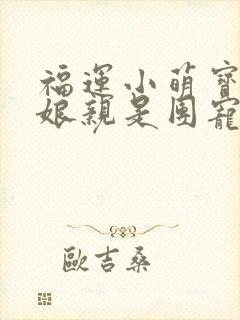 福運小萌寶
娘親是團寵
歐吉桑